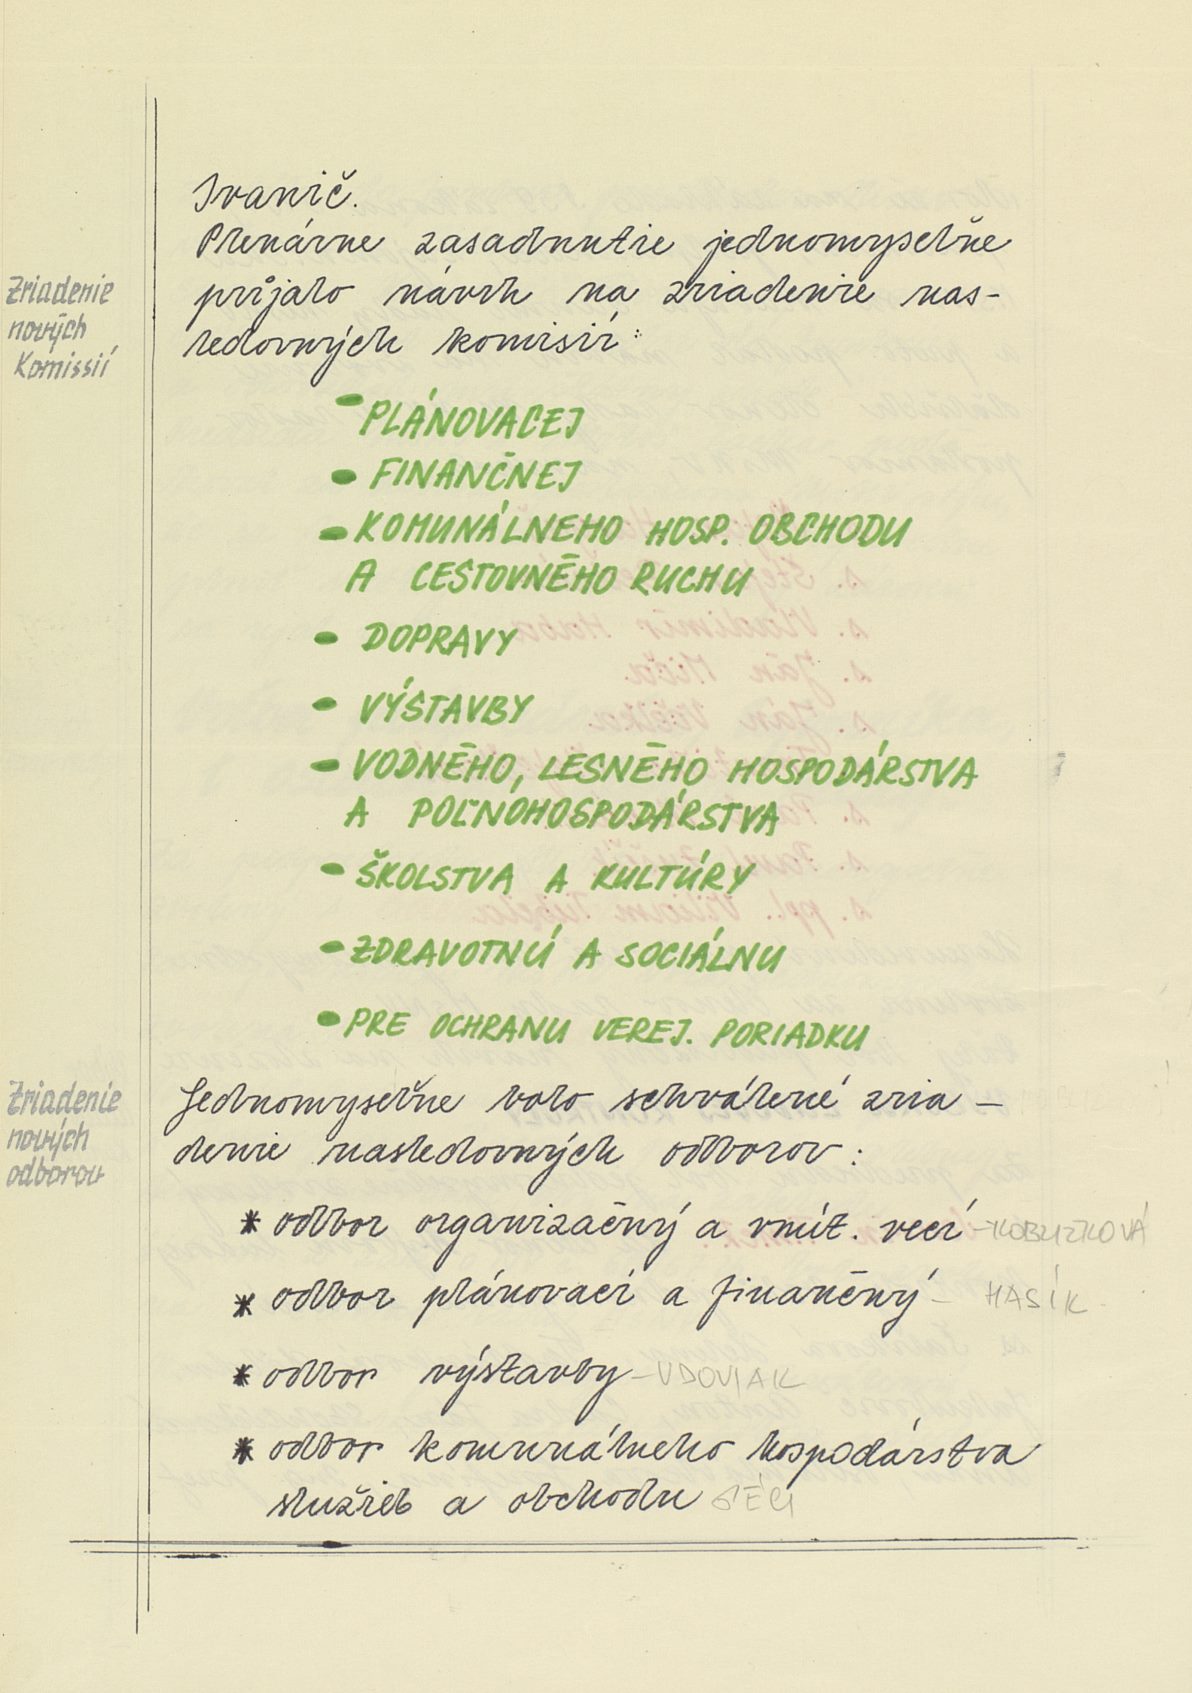 Ivanič.
Plenárne zasadnutie jednomyseľne
Zriadenie
nových
Komissií
prijalo návrh na zriadenie nas-
ledovných komisií:
- PLÁNOVACEJ
- FINANČNEJ
- KOMUNÁLNEHO HOSP. OBCHODU
A CESTOVNÉHO RUCHU
- DOPRAVY
- VÝSTAVBY
- VODNÉHO, LESNÉHO HOSPODÁRSTVA
A POĽNOHOSPODÁRSTVA
- ŠKOLSTVA A KULTÚRY
- ZDRAVOTNÚ A SOCIÁLNU
- PRE OCHRANU VEREJ. PORIADKU
Zriadenie
nových
odborov
Jednomyseľne bolo schválené zria-
denie nasledovných odborov:
* odbor organizačný a vnút. vecí - KOBLIZKOVÁ
* odbor plánovací a finančný - HASÍK
* odbor výstavby - VDOVJAK
* odbor komunálneho hospodárstva
služieb a obchodu